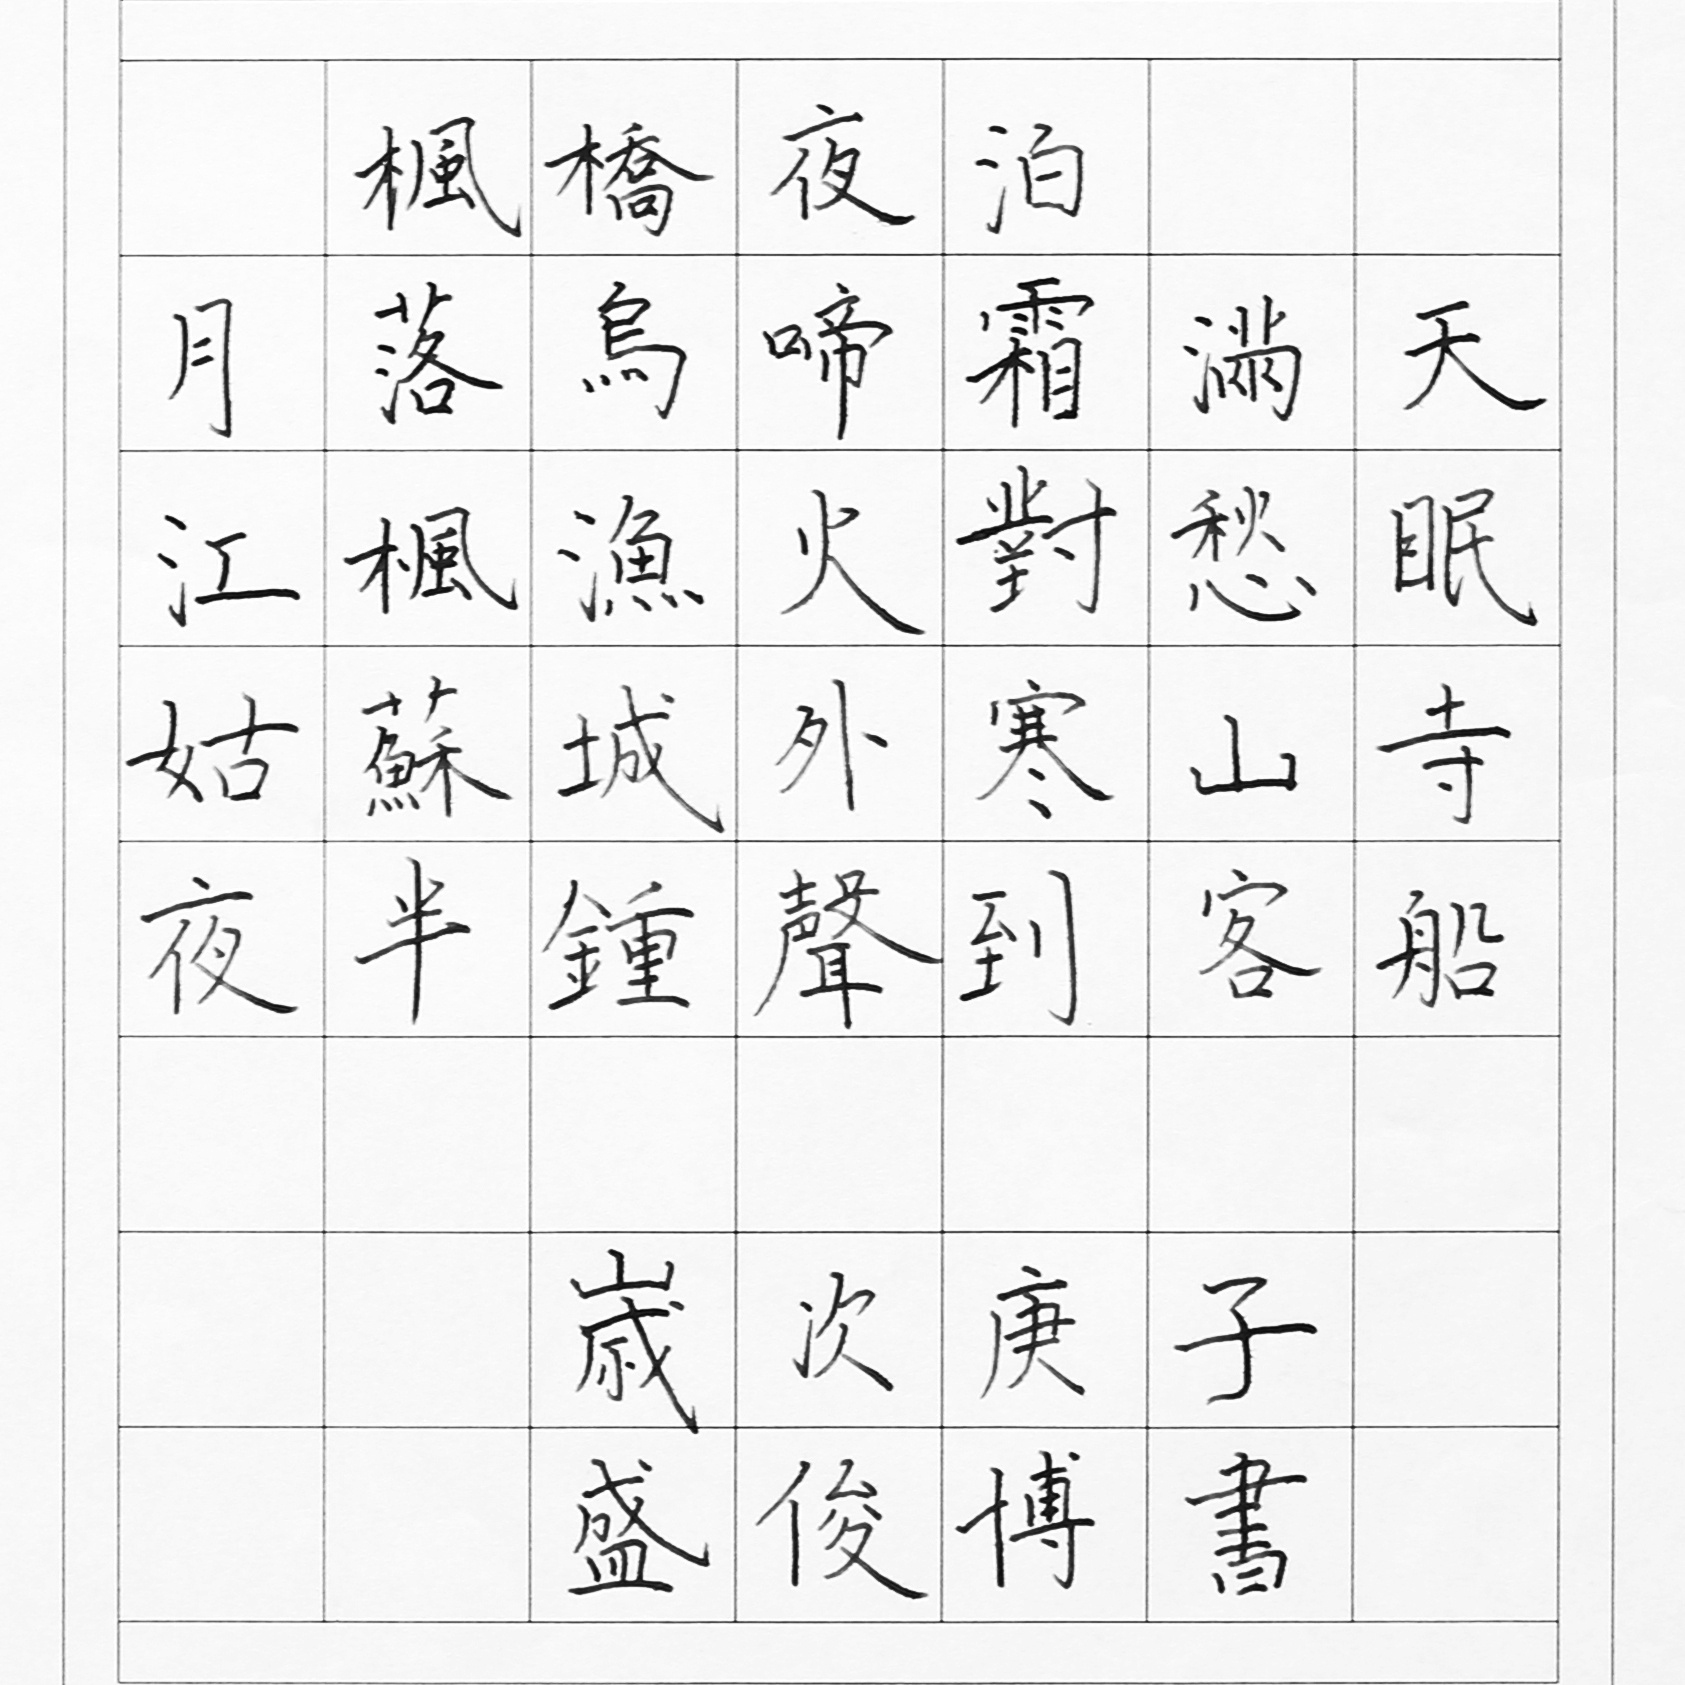 楓橋夜泊
月落烏啼霜滿天
江楓漁火對愁眠
姑蘇城外寒山寺
夜半鍾聲到客船
歲次庚子
盛俊博書